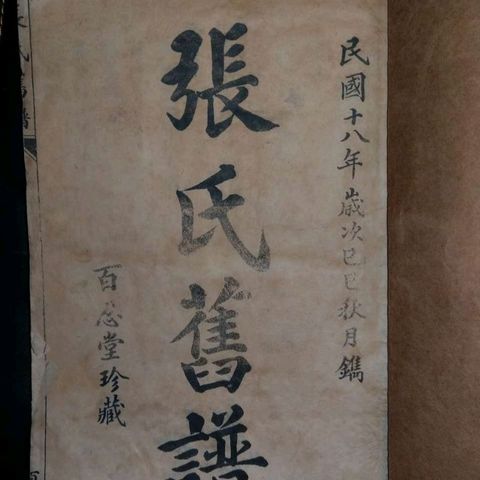 民國十八年歲次己巳秋月鐫
張氏舊譜
百忍堂珍藏
氏舊譜
百